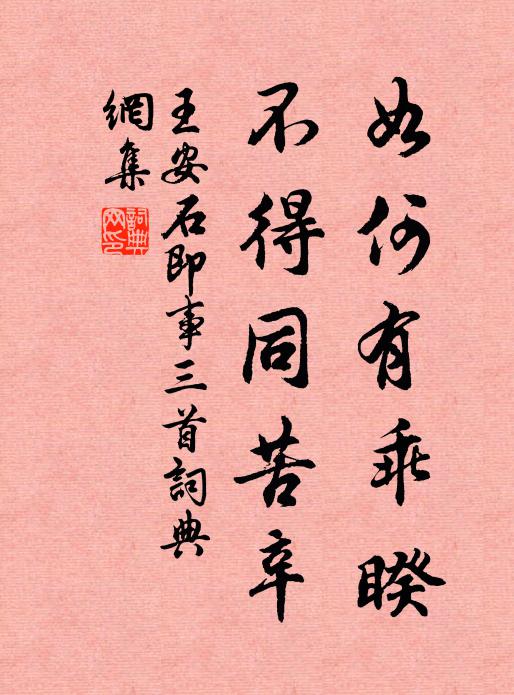 如何有乖睽
不得同苦辛
王安石即事三首詞典
網集
詞典
网印